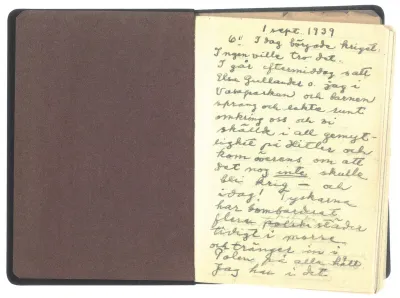 1 sept. 1939
Ő! I dag började kriget.
Ingen ville tro det.
I går eftermiddag satt
Elsa Gullander o. jag i
Vasaparken och barnen
sprang och lekte runt
omkring oss och vi
skällde i all gemyt-
lighet på Hitler och
kom överens om att
det nog inte skulle
bli krig – och
idag! Tyskarna
har bombarderat
flera polska städer
tidigt i morse
och tränger in i
Polen från alla håll.
Jag har i det